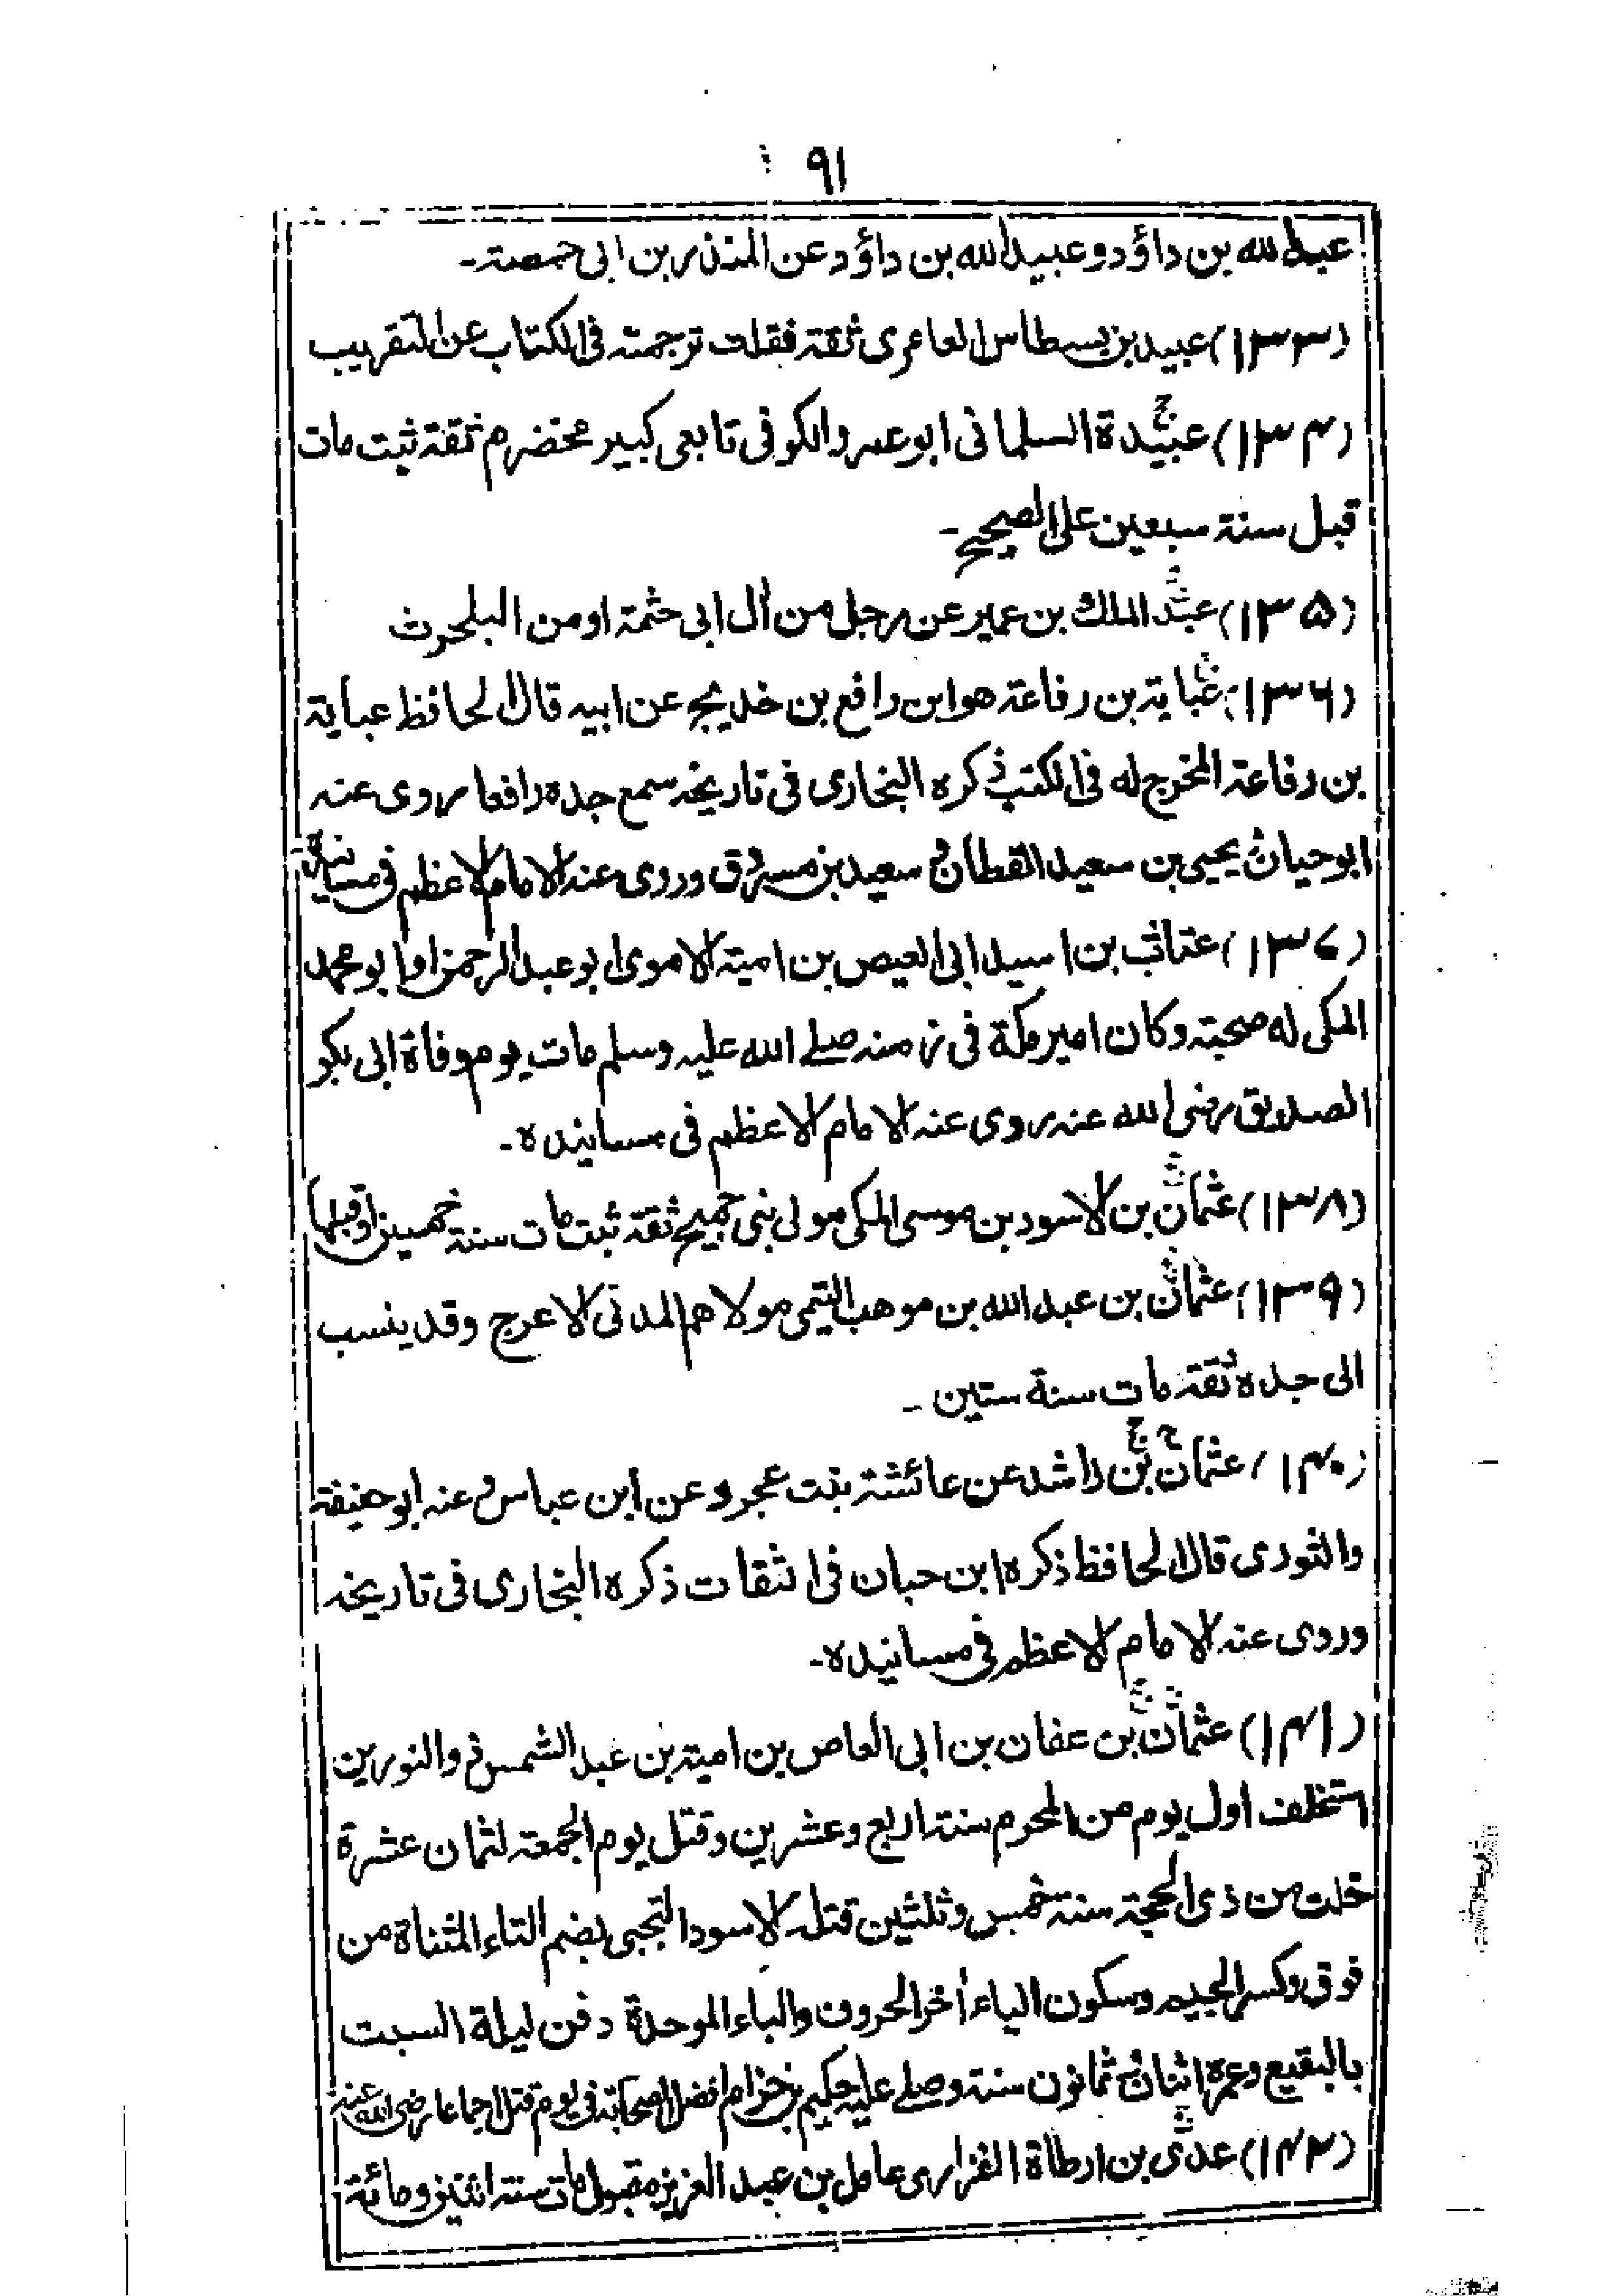 ٩١
عبد الله بن داؤد وعبيد الله بن داؤد عن المنذر بن ابى حمصة۔
(١٣٣) عبيد بن بسطاس العامرى ثقة فقلت ترجمته فى الكتاب عن التقريب
(١٣۴) عبيدة السلمانى ابو عمرو الكوفى تابعى كبير مخضرم ثقة ثبت مات
قبل سنة سبعين على الصحيح۔
(١٣۵) عبد الملك بن عمير عن رجل من أل ابى حثمة او من البلحرث
(١٣۶) عباية بن رفاعة هو ابن رافع بن خديج عن ابيه قال الحافظ عباية
بن رفاعة المخرج له فى الكتب ذكره البخارى فى تاريخه سمع جده رافعا روى عنه
ابو حيان يحيى بن سعيد القطان و سعيد بن مسروق وروى عنه الامام الاعظم فى مسانيده
(١٣٧) عتاب بن اسيد ابى العيص بن امية الاموى ابو عبد الرحمن او ابو محمد
المكى له صحبة وكان امير مكة فى زمنه صلے الله عليه وسلم مات يوم وفاة ابى بكر
الصديق رضى الله عنه روى عنه الامام الاعظم فى مسانيده۔
(١٣٨) عثمان بن الاسود بن موسى المكى مولى بنى جميح ثقة ثبت مات سنة خمسين او قبلها
(١٣٩) عثمان بن عبد الله بن موهب التيمى مولاهم المدنى الاعرج وقد ينسب
الى جده ثقة مات سنة ستين ۔
(١۴٠) عثمان بن راشد عن عائشة بنت عجرد عن ابن عباس و عنه ابو حنيفة
والثورى قال الحافظ ذكره ابن حبان فى الثقات ذكره البخارى فى تاريخه
وروى عنه الامام الاعظم فى مسانيده۔
(١۴١) عثمان بن عفان بن ابى العاص بن امية بن عبد الشمس ذو النورين
استخلف اول يوم من المحرم سنة اربع وعشرين وقتل يوم الجمعة لثمان عشرة
خلت من ذى الحجة سنة خمس وثلثين قتله الاسود التجبى بضم التاء المثناة من
فوق وكسر الجيم وسكون الياء أخر الحروف والباء الموحدة دفن ليلة السبت
بالبقيع وعمره اثنان و ثمانون سنة وصلے عليه حكيم بن حزام افضل الصحابة فى يوم قتل اجماعا رضى الله عنه
(١۴٢) عدى بن ارطاة الفزارى عامل بن عبد العزيز مقبول مات سنة اثنين ومائة